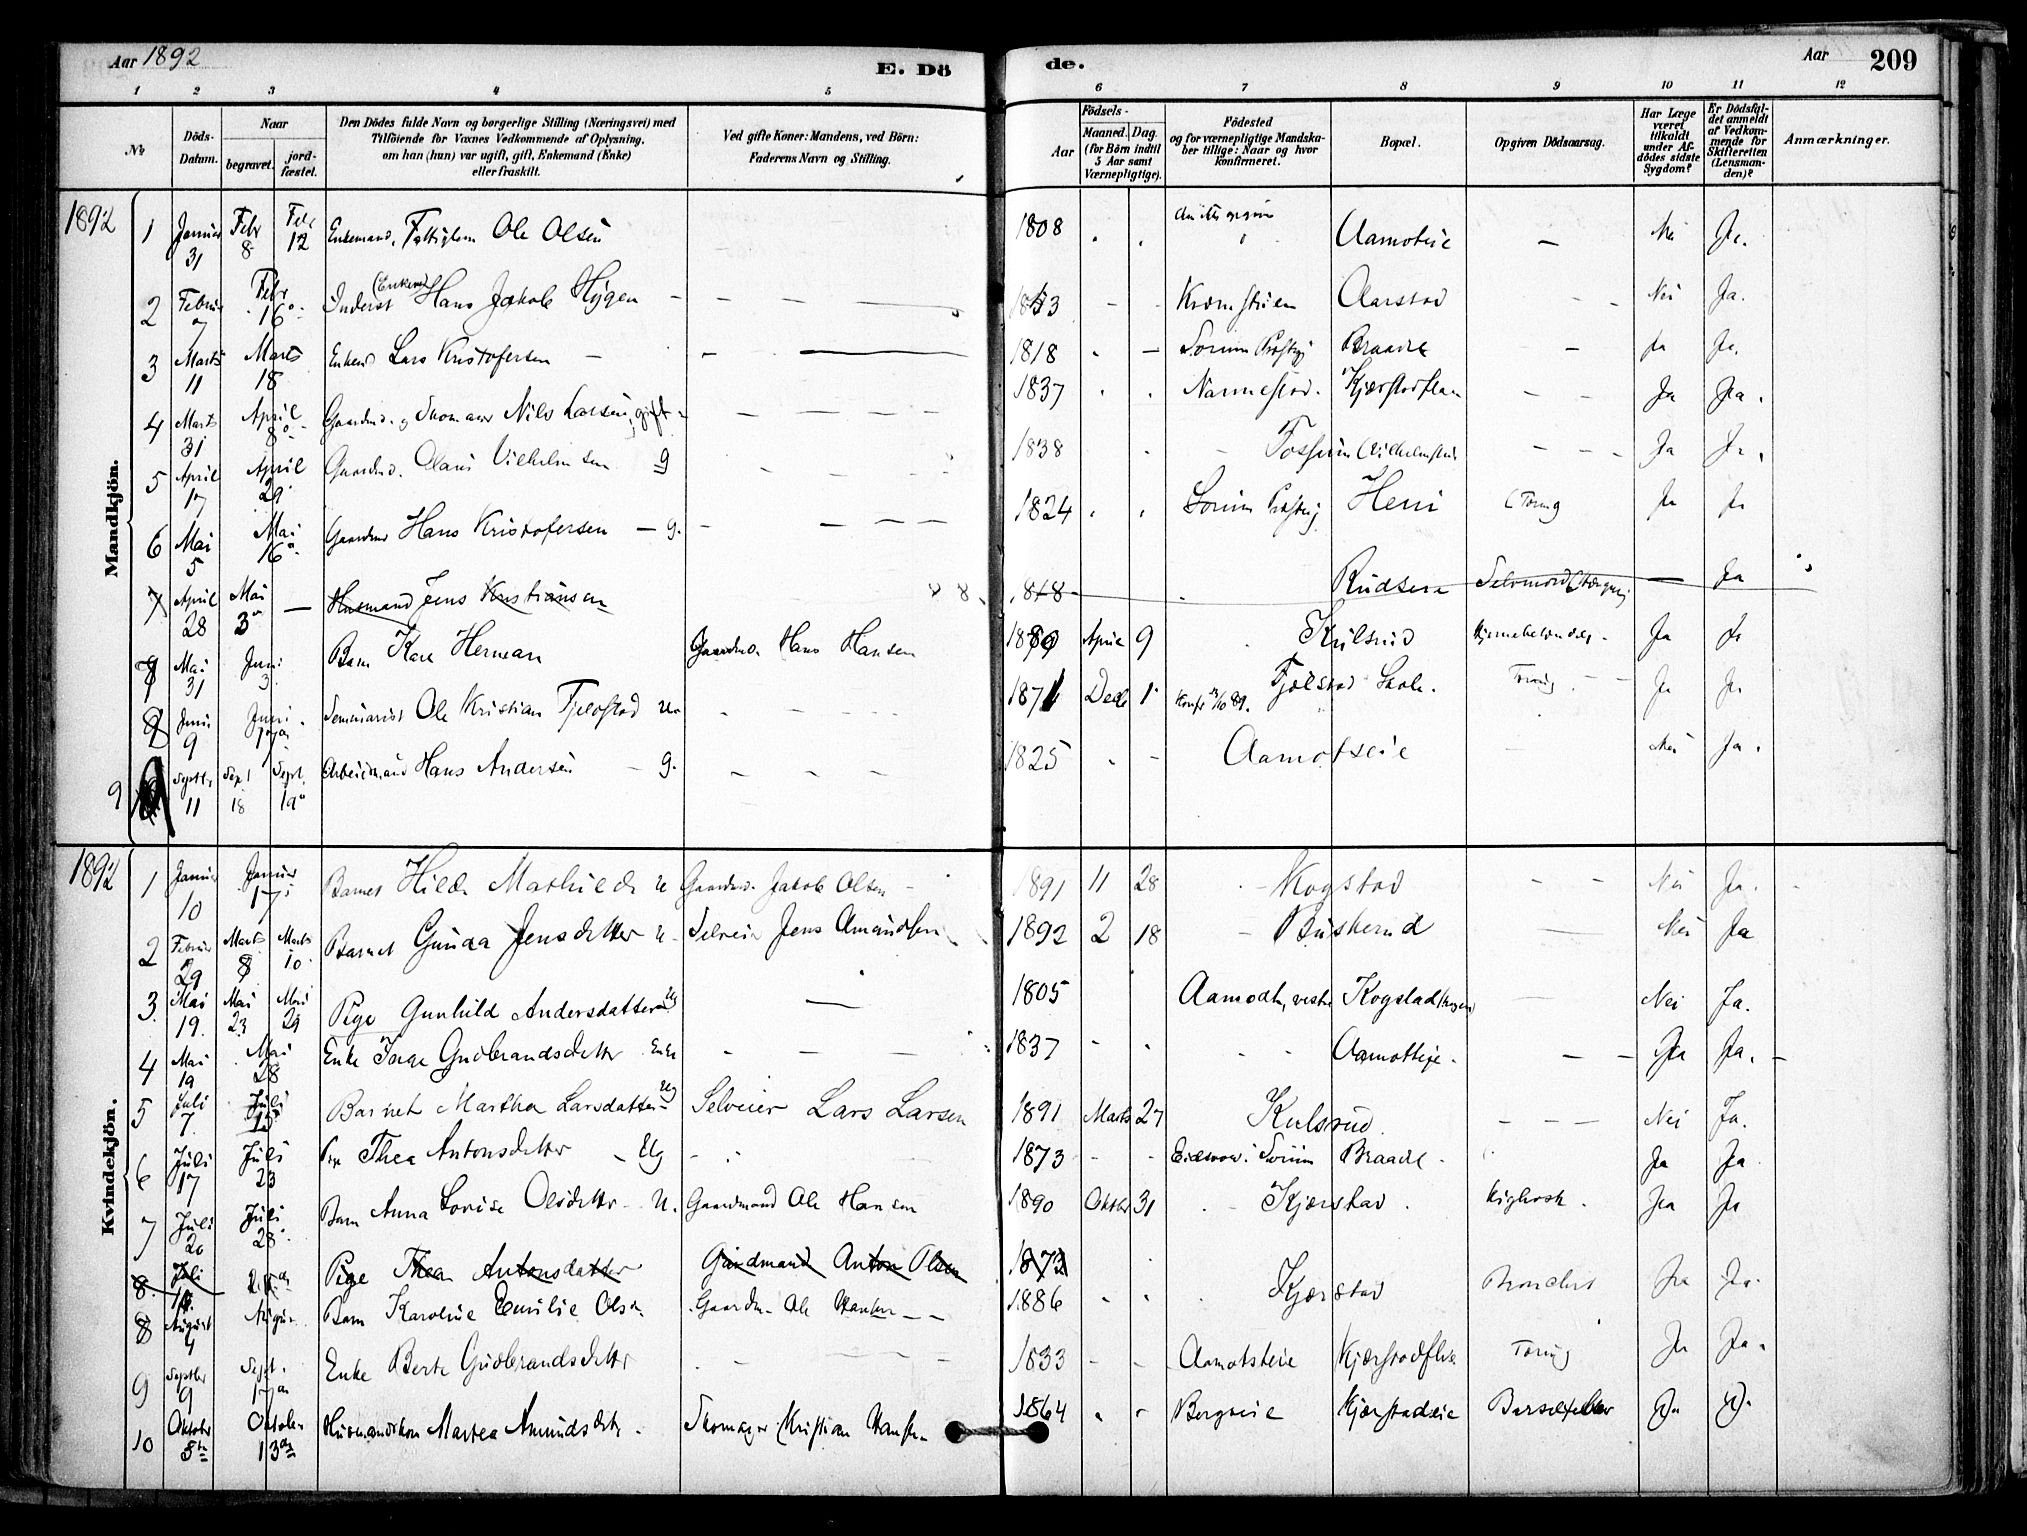 Aar 1892 E. Dö
de. Aar 209
1 2 3 4 5 6 7 8 9 10 11 12
№ Döds-Datum. Naar begravet. jord-fæstet.
Den Dödes fulde Navn og borgerlige Stilling (Næringsvei) med
Tilföiende for Voxnes Vedkommende af Oplysning,
om han (hun) var ugift, gift, Enkemand (Enke)
eller fraskilt.
Ved gifte Koner: Mandens, ved Börn:
Faderens Navn og Stilling.
Aar Födsels- Maaned. Dag. (for Börn indtil 5 Aar samt Værnepligtige).
Födested og for værnepligtige Mandskaber tillige: Naar og hvor konfirmeret.
Bopæl.
Opgiven Dödsaarsag.
Har Læge været tilkaldt under Afdödes sidste Sygdom?
Er Dödsfaldet anmeldt af Vedkommende for Skifteretten (Lensmanden)?
Anmærkninger.
Mandkjön.
1892 1 Januar 31 Febr 8 Febr 12 Enkemand, Ole Olsen 1808 Aamoteie Nei Ja.
2 Februar 7 Febr 16 Inderst (Enkem) Hans Jakob Hygen Aarstad Nei Ja.
3 Marts 11 Marts 18 Enkem Lars Kristofersen 1818 Sörum Præstgj Braadt Ja Ja.
4 Marts 31 April 8 Gaardmd. og Skomager Nils Larsen, gift 1837 Nannestad. Kjærstadflan Ja Ja.
5 April 17 April 29 Gaardmd. Olaus Vilhelmsen g 1838 Fossum Ja Ja.
6 Mai 5 Mai 16 Gaardmd Hans Kristofersen g. 1824 Sörum Præstgj Hem Tæring Ja Ja
7 April 28 Mai 3 Husmand Jens Kristiansen 1818 Rudsem Selvmord Ja
7 Mai 31 Juni 3 Barn Karl Herman Gaardmd Hans Hansen April 9 Kulsrud Ja Ja
8 Juni 9 Juni 17 Seminarist Ole Kristian Fjelstad u. 1871 Dec 1 Konf /10 89. Fjelstad Skole. Tæring Ja Ja
9 Septbr 11 Sept 18 Sept. 19 Arbeidsmand Hans Andersen g. 1825 Aamotseie Nei Ja.
Kvindekjön.
1892 1 Januar 10 Januar 17 Barnet Hilda Mathilde u Gaardmd. Jakob Olsen 1891 11 28 Kogstad Nei Ja.
2 Februar 29 Marts 8 Marts 10 Barnet Gunda Jensdatter u Selveier Jens Amundsen 1892 2 18 Buskerud Nei Ja
3. Mai 19. Mai 23 Mai 29 Pige Gunhild Andersdatter Ug 1805 Aamodt, vestre Kogstad Nei Ja.
4 Mai 19 Mai 28 Enke Inge Gudbrandsdatter Enke 1837 Aamotteie. Ja Ja.
5 Juli 7. Juli 15 Barnet Martha Larsdatter Ug Selveier Lars Larsen 1891 Marts 27 Kulsrud. Nei Ja.
6 Juli 17 Juli 23 Pige Thea Antonsdatter Ug 1873 Eidsvold i Sörum Braadt Ja Ja
7 Juli 20 Juli 28 Barn Anna Lovise Olsdatter U. Gaardmand Ole Hansen 1890 Oktbr 31 Kjærstad. Kighoste. Ja Ja
8. Juli Pige Thea Antonsdatter Gaardmand Anton Olsen 1873
8 August 4 August Barn Karoline Emilie Olsd. Gaardm. Ole Hansen 1886 Kjærstad Bronchit Ja Ja.
9 Septbr 9 Sept. 17 Enke Berte Gudbrandsdatter 1833 Aamotsteie Kjærstadflan Tæring Ja Ja.
10 Oktober 8 Oktober 13 Husmandskone Martea Amundsdatter. Skomager Kristian Hansen 1864 Bergseie Kjærstadeie Barselfeber Ja Ja.